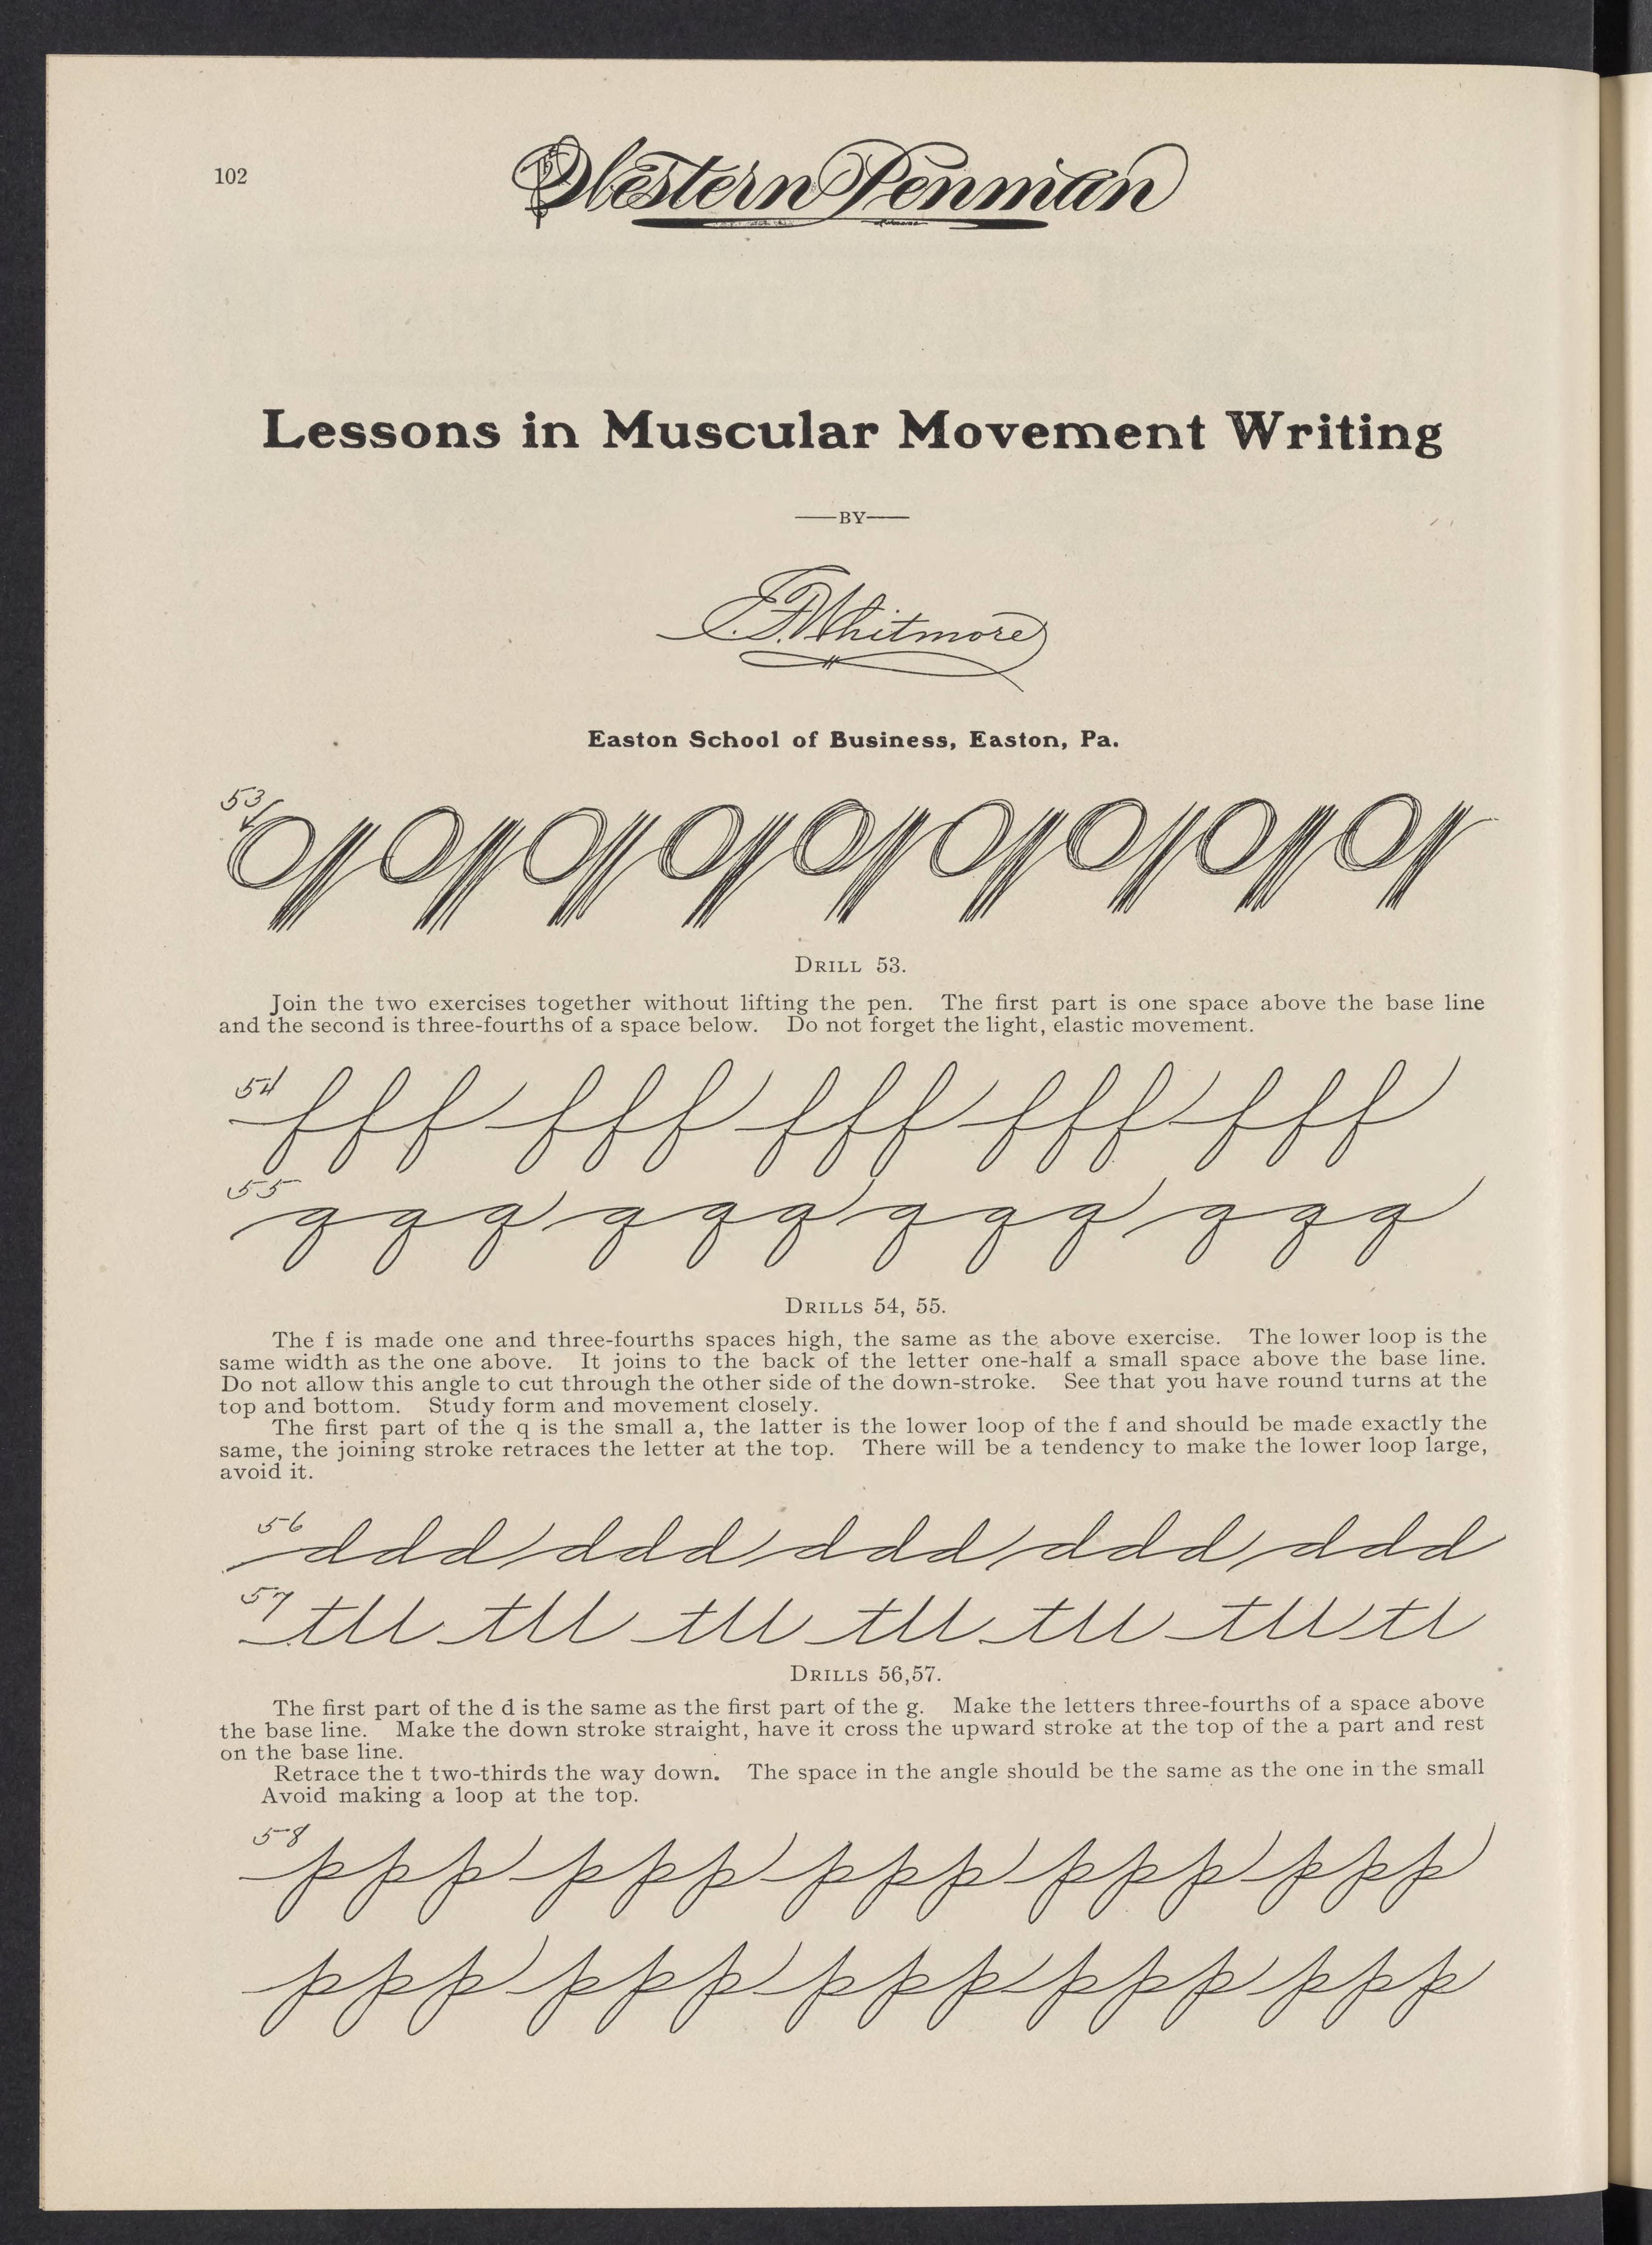 102
Western Penman
Lessons in Muscular Movement Writing
——BY——
E. F. Whitmore
Easton School of Business, Easton, Pa.
53
DRILL 53.
Join the two exercises together without lifting the pen. The first part is one space above the base line
and the second is three-fourths of a space below. Do not forget the light, elastic movement.
54
f f f f f f f f f f f f f f f
55
q q q q q q q q q q q q
DRILLS 54, 55.
The f is made one and three-fourths spaces high, the same as the above exercise. The lower loop is the
same width as the one above. It joins to the back of the letter one-half a small space above the base line.
Do not allow this angle to cut through the other side of the down-stroke. See that you have round turns at the
top and bottom. Study form and movement closely.
The first part of the q is the small a, the latter is the lower loop of the f and should be made exactly the
same, the joining stroke retraces the letter at the top. There will be a tendency to make the lower loop large,
avoid it.
56
d d d d d d d d d d d d d d d
57
ttt ttt ttt ttt ttt ttt tt
DRILLS 56,57.
The first part of the d is the same as the first part of the g. Make the letters three-fourths of a space above
the base line. Make the down stroke straight, have it cross the upward stroke at the top of the a part and rest
on the base line.
Retrace the t two-thirds the way down. The space in the angle should be the same as the one in the small
Avoid making a loop at the top.
58
p p p p p p p p p p p p p p p
p p p p p p p p p p p p p p p